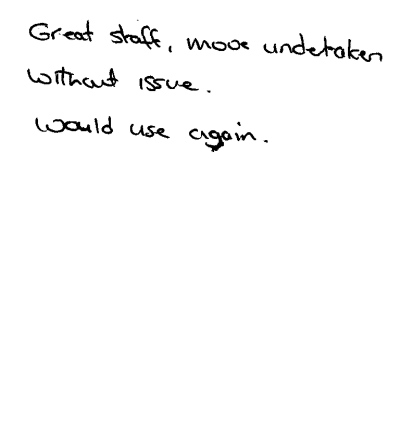 Great staff, move undertaken
without issue.
Would use again.